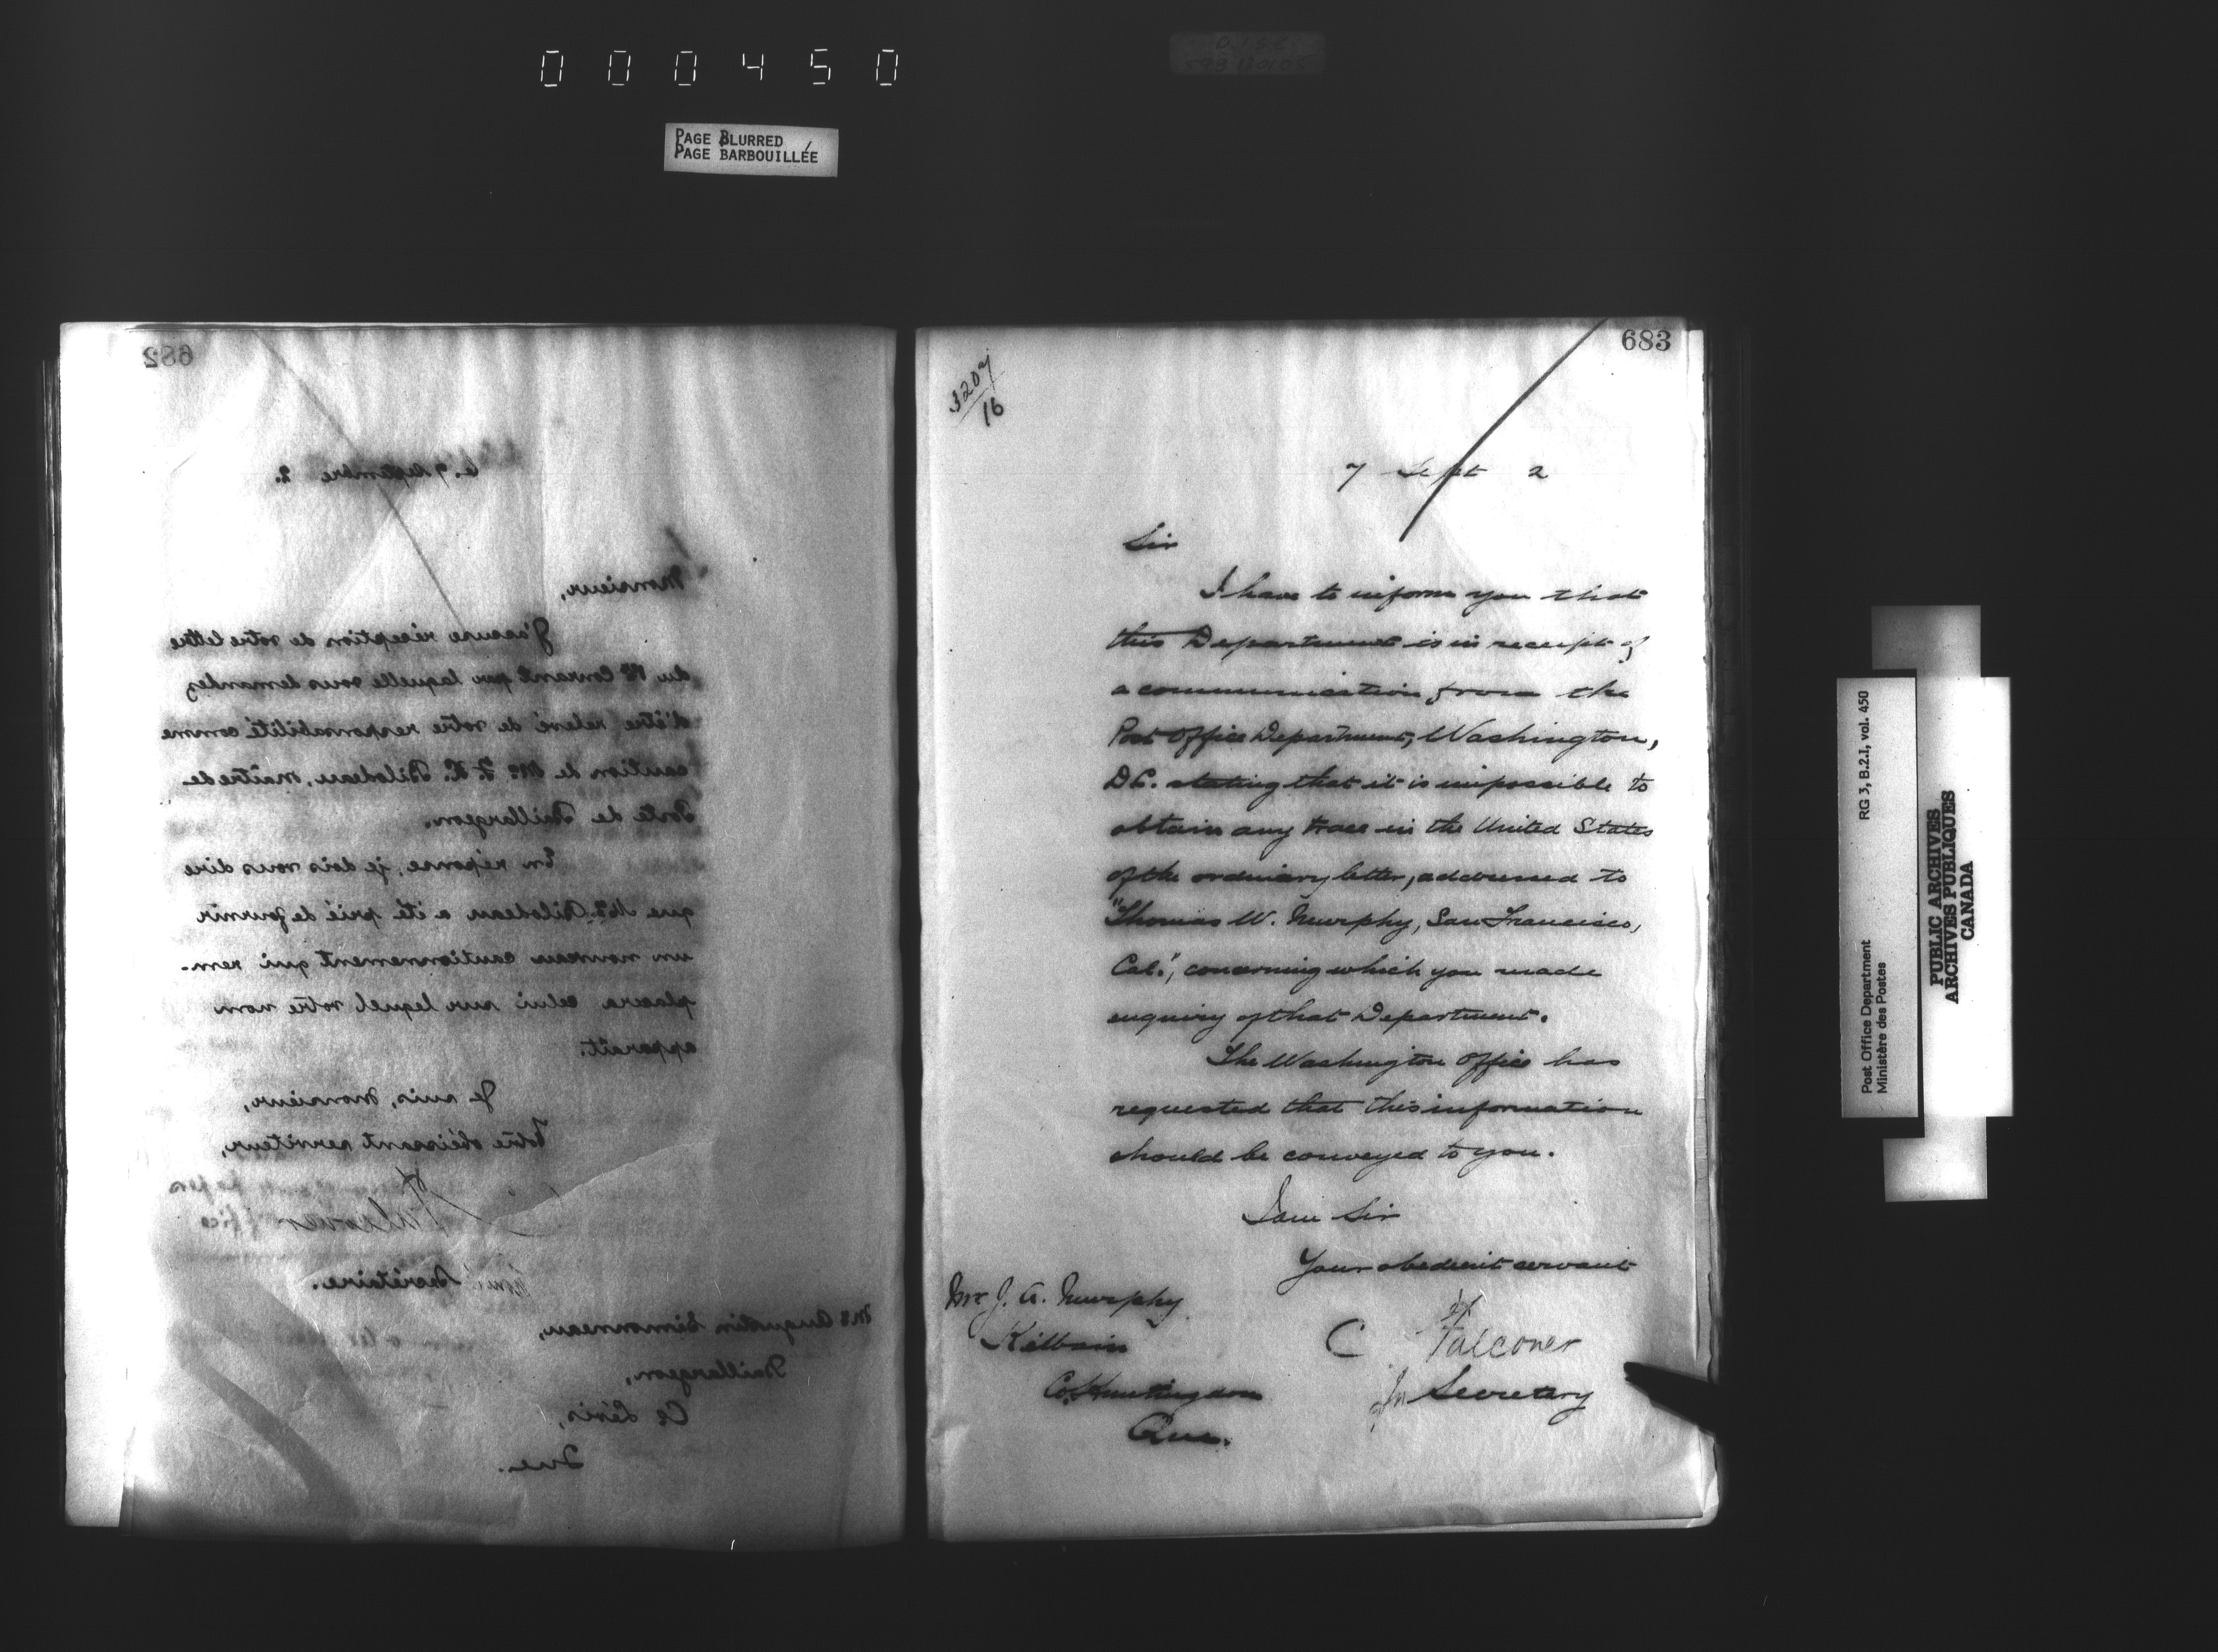 000450
PAGE BLURRED
PAGE BARBOUILLÉE
682
le 7 Septembre 2.
Monsieur,
J'accuse réception de votre lettre
du courant par laquelle vous demandez
d'être relevé de votre responsabilité comme
caution de Mr. F. X. Bilodeau, maître de
Poste de Taillargeon.
En réponse, je dois vous dire
que Mr. Bilodeau a été prié de fournir
un nouveau cautionnement qui rem-
placera celui sur lequel votre nom
apparaît.
Je suis, Monsieur,
Votre obéissant serviteur,
Falconer
Secrétaire.
Mr Augustin Simonneau,
Taillargeon,
Co Lévis,
Que.
683
3207/16
7 Sept 2
Sir
I have to inform you that
this Department is in receipt of
a communication from the
Post Office Department, Washington,
D.C. stating that it is impossible to
obtain any trace in the United States
of the ordinary letter, addressed to
"Thomas W. Murphy, San Francisco,
Cal.", concerning which you made
enquiry of that Department.
The Washington Office has
requested that this information
should be conveyed to you.
I am Sir
Your obedient servant
C Falconer
Secretary
Mr J. A. Murphy
Kilbain
Co. Huntingdon
Que.
Post Office Department RG 3, B.2.1, vol. 450
Ministère des Postes
PUBLIC ARCHIVES
ARCHIVES PUBLIQUES
CANADA